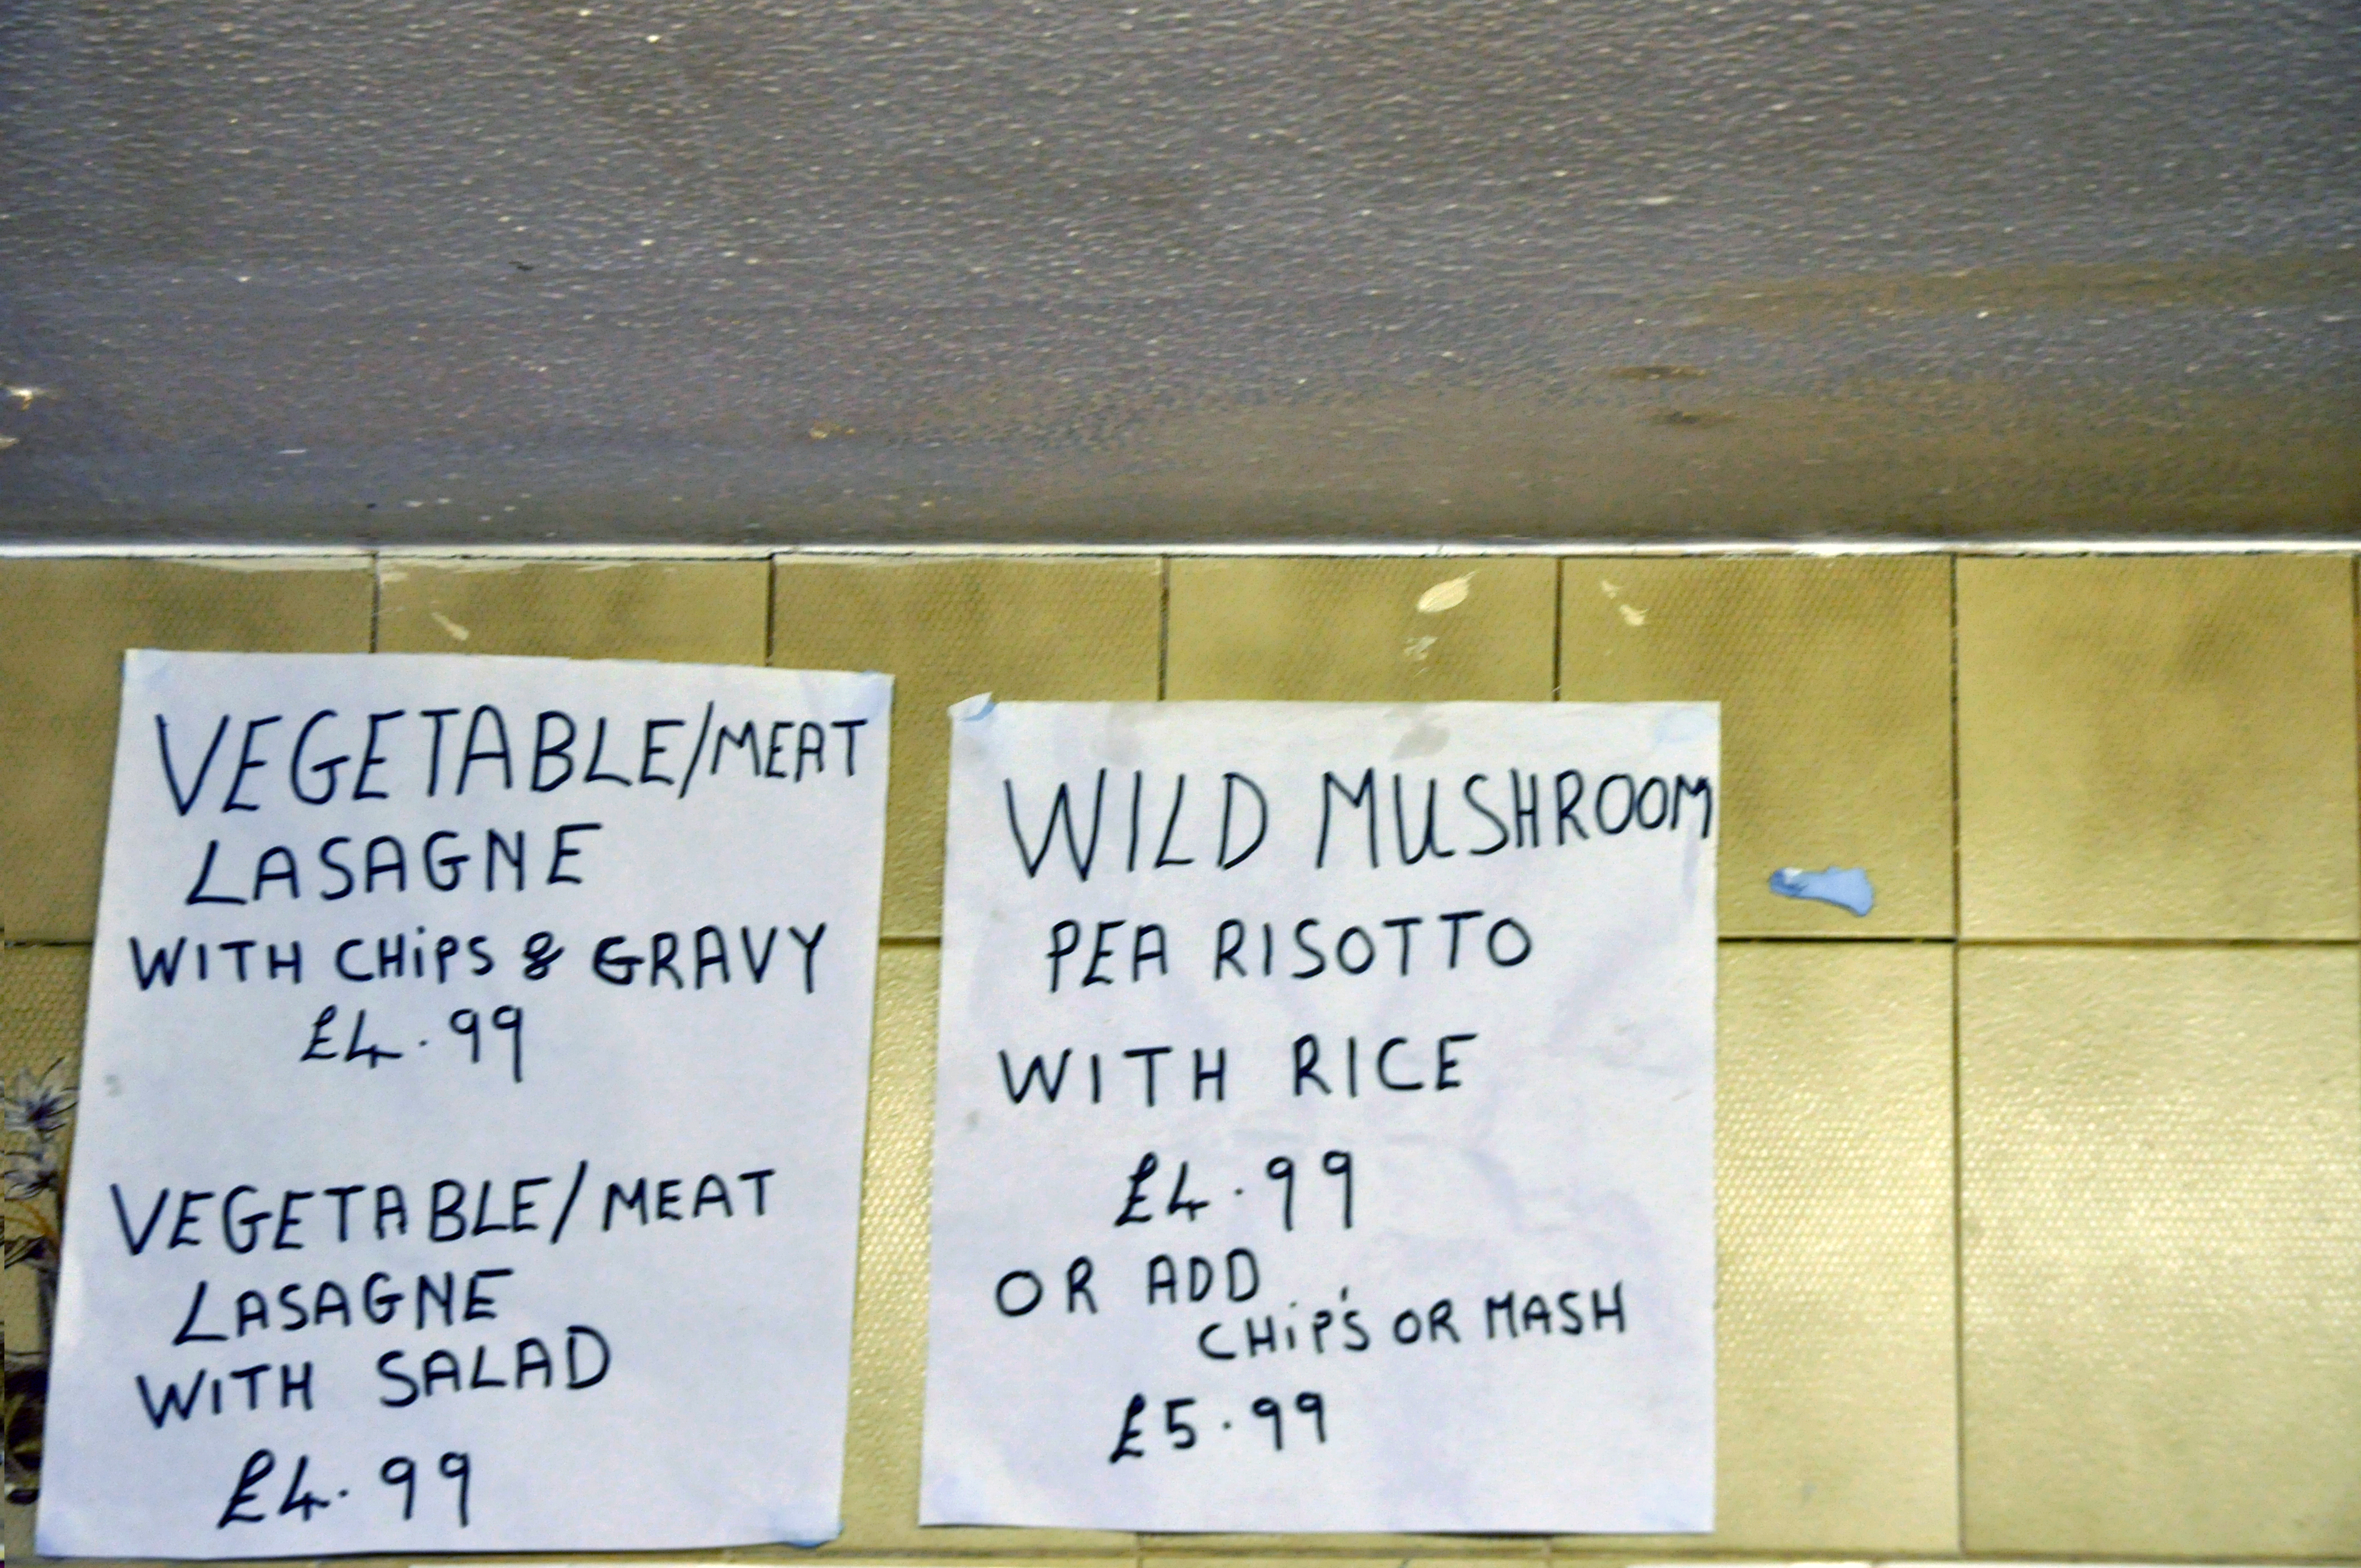 VEGETABLE/MEAT
LASAGNE
WITH CHiPS & GRAVY
£4.99
VEGETABLE/MEAT
LASAGNE
WITH SALAD
£4.99
WILD MUSHROOM
PEA RISOTTO
WITH RICE
£4.99
OR ADD
CHiP'S OR MASH
£5.99